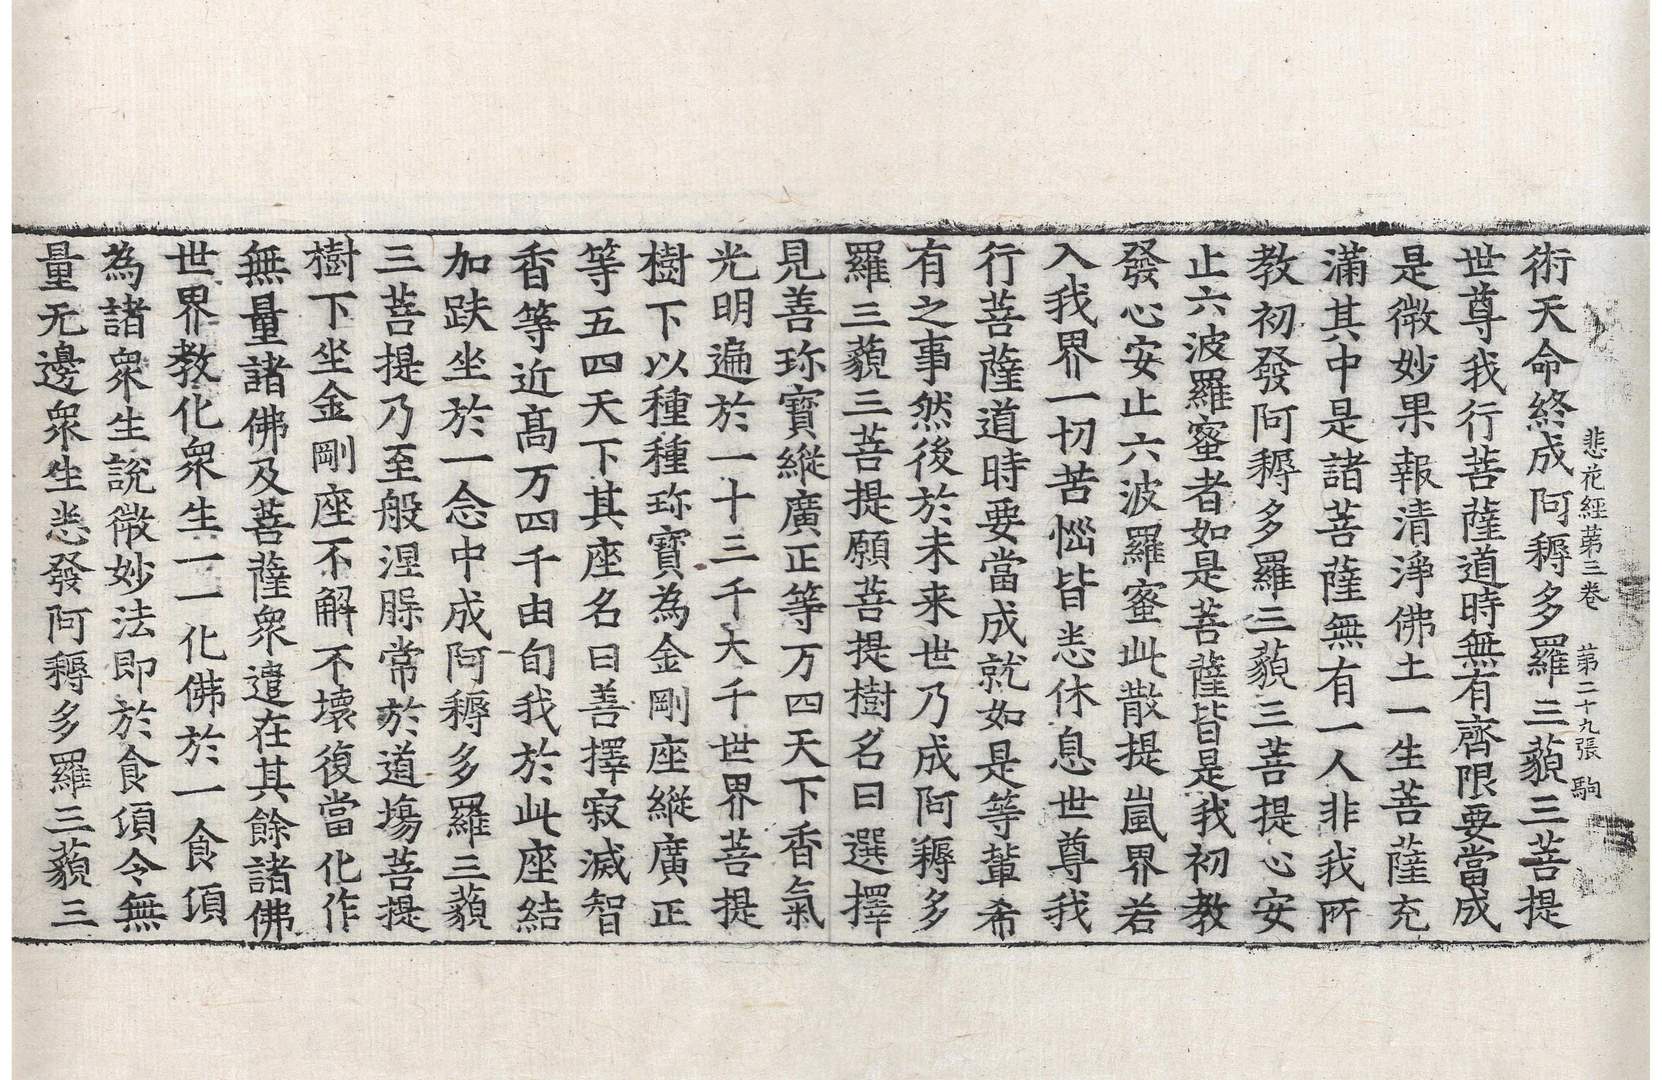 悲花經苐三卷　苐二十九張　駒
術天命終成阿耨多羅三藐三菩提
世尊我行菩薩道時無有齊限要當成
是微妙果報清淨佛土一生菩薩充
滿其中是諸菩薩無有一人非我所
教初發阿耨多羅三藐三菩提心安
止六波羅蜜者如是菩薩皆是我初教
發心安止六波羅蜜此散提嵐界若
入我界一切苦惱皆悉休息世尊我
行菩薩道時要當成就如是等輩希
有之事然後於未来世乃成阿耨多
羅三藐三菩提願菩提樹名曰選擇
見善珎寶縱廣正等万四天下香氣
光明遍於一十三千大千世界菩提
樹下以種種珎寶為金剛座縱廣正
等五四天下其座名曰善擇寂滅智
香等近高万四千由旬我於此座結
加趺坐於一念中成阿耨多羅三藐
三菩提乃至般涅槃常於道場菩提
樹下坐金剛座不解不壞復當化作
無量諸佛及菩薩衆遣在其餘諸佛
世界教化衆生一一化佛於一食頃
為諸衆生說微妙法即於食頃令無
量无邊衆生悉發阿耨多羅三藐三